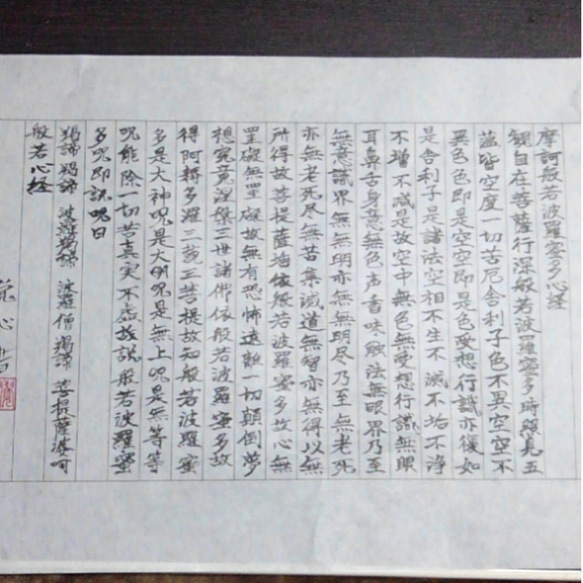 摩訶般若波羅蜜多心経
観自在菩薩行深般若波羅蜜多時照見五
蘊皆空度一切苦厄舎利子色不異空空不
異色色即是空空即是色受想行識亦復如
是舎利子是諸法空相不生不滅不垢不浄
不増不減是故空中無色無受想行識無眼
耳鼻舌身意無色声香味触法無眼界乃至
無意識界無無明亦無無明尽乃至無老死
亦無老死尽無苦集滅道無智亦無得以無
所得故菩提薩埵依般若波羅蜜多故心無
罣礙無罣礙故無有恐怖遠離一切顛倒夢
想究竟涅槃三世諸佛依般若波羅蜜多故
得阿耨多羅三藐三菩提故知般若波羅蜜
多是大神呪是大明呪是無上呪是無等等
呪能除一切苦真実不虚故説般若波羅蜜
多呪即説呪曰
羯諦羯諦 波羅羯諦 波羅僧羯諦 菩提薩婆可
般若心経
心書